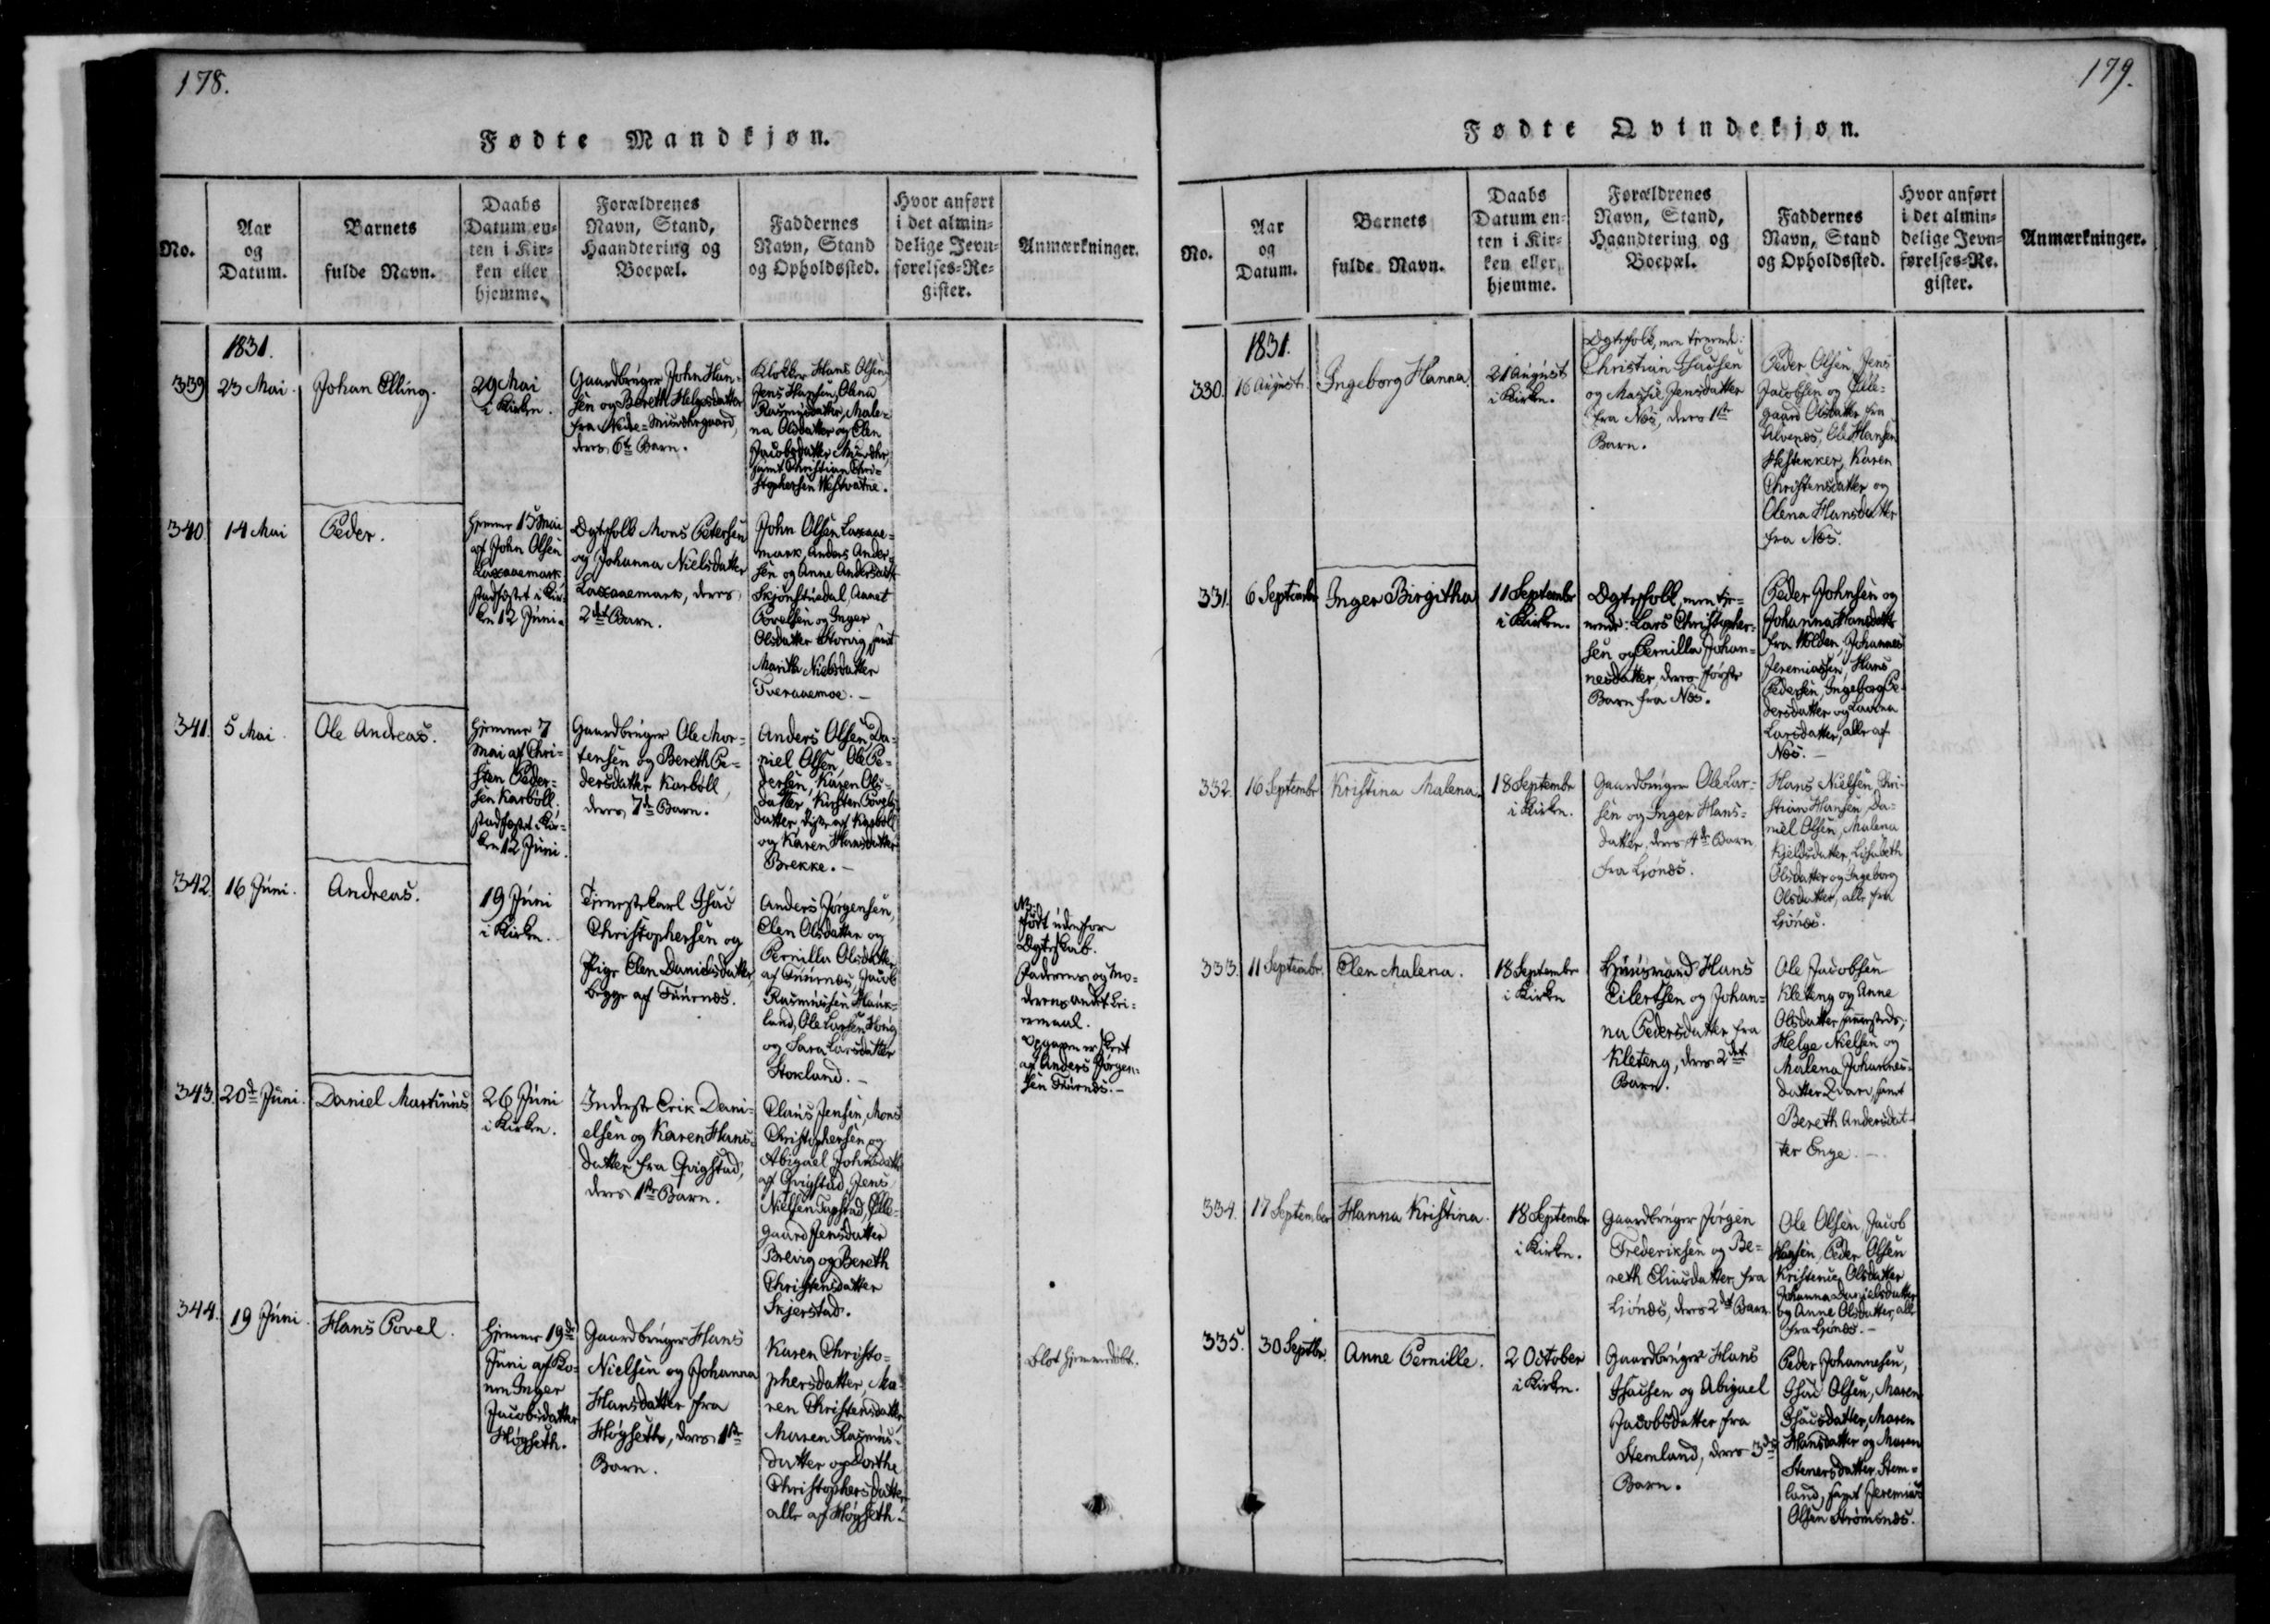 178.
Fødte Mandkjøn.
No.
Aar
og
Datum.
Barnets
fulde Navn.
Daabs
Datum en-
ten i Kir-
ken eller
hjemme.
Forældrenes
Navn, Stand,
Haandtering og
Boepæl.
Faddernes
Navn, Stand
og Opholdssted.
Hvor anført
i det almin-
delige Jevn-
førelses-Re-
gister.
Anmærkninger.
1831.
339
23 Mai.
Johan Elling.
29 Mai
i Kirken.
Gaardbruger John Han-
sen og Bereth Helgesdatter
fra Nedre-Misværgaard,
deres 6te Barn.
Klokker Hans Olsen,
Jens Hansen, Olena
Rasmusdatter, Male-
na Olsdatter og Elen
Jacobsdatter Misvær,
samt Christian Chri-
stophersen Vestvatne.
340
14 Mai
Peder.
Hjemme 15 Mai
af John Olsen
Laxaaemark
stadfæstet i Kir-
ken 12 Juni.
Ægtefolk Mons Petersen
og Johanna Nielsdatter
Laxaaemark, deres
2det Barn.
John Olsen Laxaae-
mark, Anders Ander-
sen og Anne Andersdatt
Skjønstuedal,
Povelsen og Inger
Olsdatter Storvig, samt
Marith Nielsdatter
Tveraaemoe.
341.
5 Mai.
Ole Andreas.
Hjemme 7
Mai af Chri-
sten Peder-
sen Karbøll.
stadfæstet i Kir-
ken 12 Juni.
Gaardbruger Ole Mor-
tensen og Bereth Pe-
dersdatter Karbøll,
deres 7de Barn.
Anders Olsen, Da-
niel Olsen, Ole Pe-
dersen, Karen Ols-
datter, Kirsten Povels-
datter, disse af Karbøll
og Karen Hansdatter
Brekke.
342.
16 Juni.
Andreas.
19 Juni
i Kirken.
Tjenestekarl Isac
Christophersen og
Pige Elen Danielsdatter,
begge af Tuurnæs.
Anders Jørgensen,
Elen Olsdatter og
Pernilla Olsdatter
af Tuurnæs, Jacob
Rasmussen Hauk-
land, Ole Larsen
og Sara Larsdatter
Stokland.
NB.
født udenfor
Ægteskab.
Faderens og Mo-
derens andet Lei-
ermaal.
Opgaven er skeet
af Anders Jørgen-
sen Tuurnæs.
343.
20de Juni.
Daniel Martinus
26 Juni
i Kirken.
Inderste Erik Dani-
elsen og Karen Hans-
datter fra Qvigstad,
deres 1ste Barn.
Claus Jensen, Mons
Christophersen og
Abigael Johnsdatter
af Qvigstad, Jens
Nielsen Tapstad, Elle-
gaard Jensdatter
Brevig og Bereth
Christensdatter
Skjerstad.
344.
19 Juni.
Hans Povel.
Hjemme 19de
Juni af Ko-
nen Inger
Jacobsdatter
Høgseth.
Gaardbruger Hans
Nielsen og Johanna
Hansdatter fra
Høgseth, deres 1ste
Barn.
Karen Christo-
phersdatter, Ma-
ren Christensdatter
Maren Rasmus-
datter og Dorthe
Christophersdatter
alle af Høgseth.
Blot hjemmedøbt.
179.
Fødte Qvindekjøn.
No.
Aar
og
Datum.
Barnets
fulde Navn.
Daabs
Datum en-
ten i Kir-
ken eller
hjemme.
Forældrenes
Navn, Stand,
Haandtering og
Boepæl.
Faddernes
Navn, Stand
og Opholdssted.
Hvor anført
i det almin-
delige Jevn-
førelses-Re-
gister.
Anmærkninger.
1831.
330.
16 August.
Ingeborg Hanna.
21 August
i Kirken.
Ægtefolk, men tienende:
Christian Isacsen
og Massie Jensdatter
fra Næs, deres 1ste
Barn.
Peder Olsen, Jens
Jacobsen og Elle-
gaard Olsdatter fra
Alvenæs, Ole Hansen
Hestekker, Karen
Christensdatter og
Olena Hansdatter
fra Næs.
331.
6 September
Inger Birgitha
11 Septembr
i Kirken.
Ægtefolk, men tje-
nende: Lars Christopher-
sen og Pernilla Johan-
nesdatter, deres første
Barn fra Næs.
Peder Johnsen og
Johanna Hansdatter
fra Volden, Johannes
Jeremiassen, Hans
Pedersen, Ingeborg Pe-
dersdatter og Lavina
Larsdatter, alle af
Næs.
332.
16 Septembr
Kristina Malena.
18 Septembr
i Kirken.
Gaardbruger Ole Lar-
sen og Inger Hans-
datter, deres 4de Barn
fra Ljønæs.
Hans Nielsen, Chri-
stian Hansen, Da-
niel Olsen, Malena
Kjeldsdatter, Lisabeth
Olsdatter og Ingeborg
Olsdatter, alle fra
Ljønæs.
333.
11 Septembr.
Elen Malena.
18 Septembr
i Kirken
Huusmand Hans
Eilertsen og Johan-
na Pedersdatter fra
Kleteng, deres 2det
Barn.
Ole Jacobsen
Kleteng og Anne
Olsdatter sammesteds,
Helge Nielsen og
Malena Johannes-
datter Qvarn, samt
Bereth Andersdat-
ter Enge.
334.
17 September
Hanna Kristina.
18 Septembr
i Kirken.
Gaardbruger Jørgen
Frederiksen og Be-
reth Eliasdatter fra
Ljønæs, deres 2det Barn.
Ole Olsen, Jacob
Hansen, Peder Olsen
Kristence Olsdatter
Johanna Danielsdatter
og Anne Olsdatter, alle
fra Ljønæs.
335.
30 Septbr.
Anne Pernille.
2 October
i Kirken.
Gaardbruger Hans
Isacsen og Abigael
Jacobsdatter fra
Stemland, deres 3de
Barn.
Peder Johannesen,
Isac Olsen, Maren
Isacsdatter, Maren
Hansdatter og Maren
Stenersdatter Stem-
land, samt Jeremias
Olsen Strømsnæs.